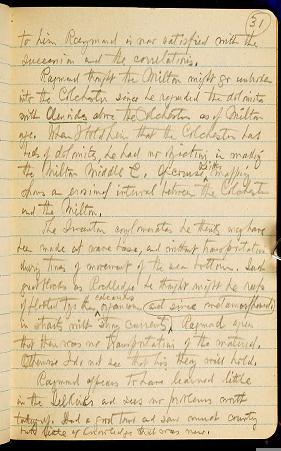 31
to him Raymond is now satisfied with the
succession and the correlations.
Raymond thought the Milton might go
into the Colchester since he regarded the dolomites
with above the Colchester as of Milton
age. When I told him that the Colchester had
beds of dolomite, he had no objection in making
the Milton Middle C. Of course, mapping
shows an erosional interval between the Colchester
and the Milton.
The conglomerates he thinks may have
been made at same base, and without transportation
during times of movement of the sea bottom. Such
great blocks as he thought might be reefs
of the calcareous (and since metamorphosed)
in shales with strong currents. Raymond agrees
that there was no transportation of the material.
Otherwise I do not see that his theory will hold.
Raymond appears to have learned little
in the and sees no problems worth
Had a good tour and saw much country
but little of knowledge that was new.